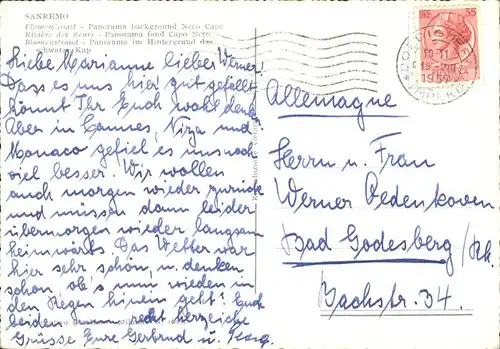 SANREMO
Flowers' coast - Panorama background Nero Cape
Rivière des fleurs - Panorama fond Capo Nero
Blumenstrand - Panorama im Hintergrund das
schwarze Kap
Liebe Marianne lieber Werner!
Dass es uns hier gut gefällt
könnt Ihr Euch wohl denk.
Aber in Cannes, Nizza und
Monaco gefiel es uns noch
viel besser. Wir wollen
auch morgen wieder zurück
und müssen dann leider
übermorgen wieder langsam
heimwärts. Das Wetter war
hier sehr schön, u. denken
schon, ob's nun wieden in
den Regen hinein geht? Euch
beiden recht herzliche
Grüsse Eure Gertrud u.
Allemagne
Herrn u. Frau
Werner Oedenkoven
Bad Godesberg/Rh.
Bachstr. 34.
1957